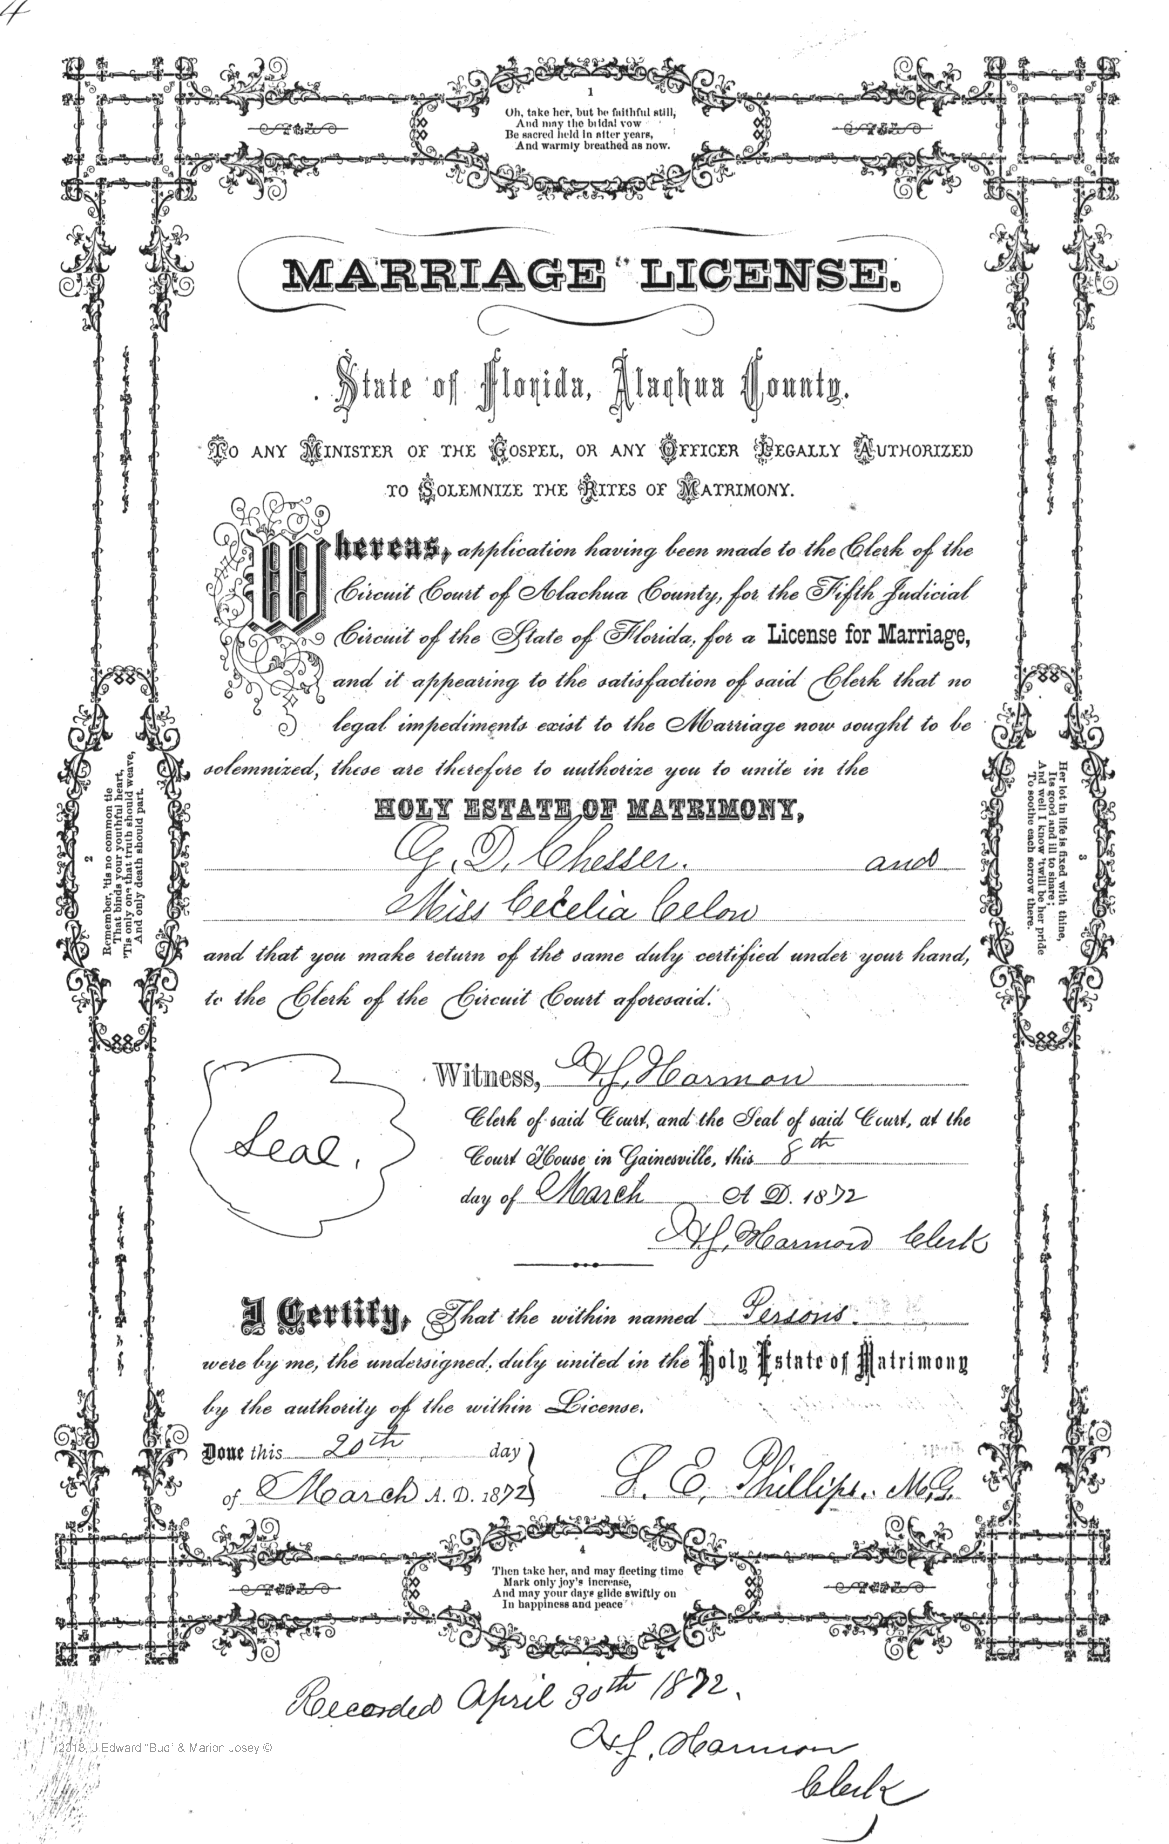 4
1
Oh, take her, but be faithful still,
And may the bridal vow
Be sacred held in after years,
And warmly breathed as now.
MARRIAGE LICENSE.
State of Florida, Alachua County.
TO ANY MINISTER OF THE GOSPEL, OR ANY OFFICER LEGALLY AUTHORIZED
TO SOLEMNIZE THE RITES OF MATRIMONY.
Whereas, application having been made to the Clerk of the
Circuit Court of Alachua County, for the Fifth Judicial
Circuit of the State of Florida, for a License for Marriage,
and it appearing to the satisfaction of said Clerk that no
legal impediments exist to the Marriage now sought to be
solemnized, these are therefore to authorize you to unite in the
HOLY ESTATE OF MATRIMONY,
G. D. Chesser. and
Miss Cecelia Celon
and that you make return of the same duly certified under your hand,
to the Clerk of the Circuit Court aforesaid.
2
Remember, 'tis no common tie
That binds your youthful heart,
'Tis only one that truth should weave,
And only death should part.
3
Her lot in life is fixed with thine,
Its good and ill to share;
And well I know 'twill be her pride
To soothe each sorrow there.
Seal.
Witness, H. J. Harmon
Clerk of said Court, and the Seal of said Court, at the
Court House in Gainesville, this 8th
day of March A D. 1872
H. J. Harmon Clerk
I Certify, That the within named Persons.
were by me, the undersigned, duly united in the Holy Estate of Matrimony
by the authority of the within License.
Done this 20th day
of March A. D. 1872
S. E. Phillips. M.G.
4
Then take her, and may fleeting time
Mark only joy's increase,
And may your days glide swiftly on
In happiness and peace
Recorded April 30th 1872.
H. J. Harmon
Clerk
2018, J Edward "Bud" & Marion Josey ©